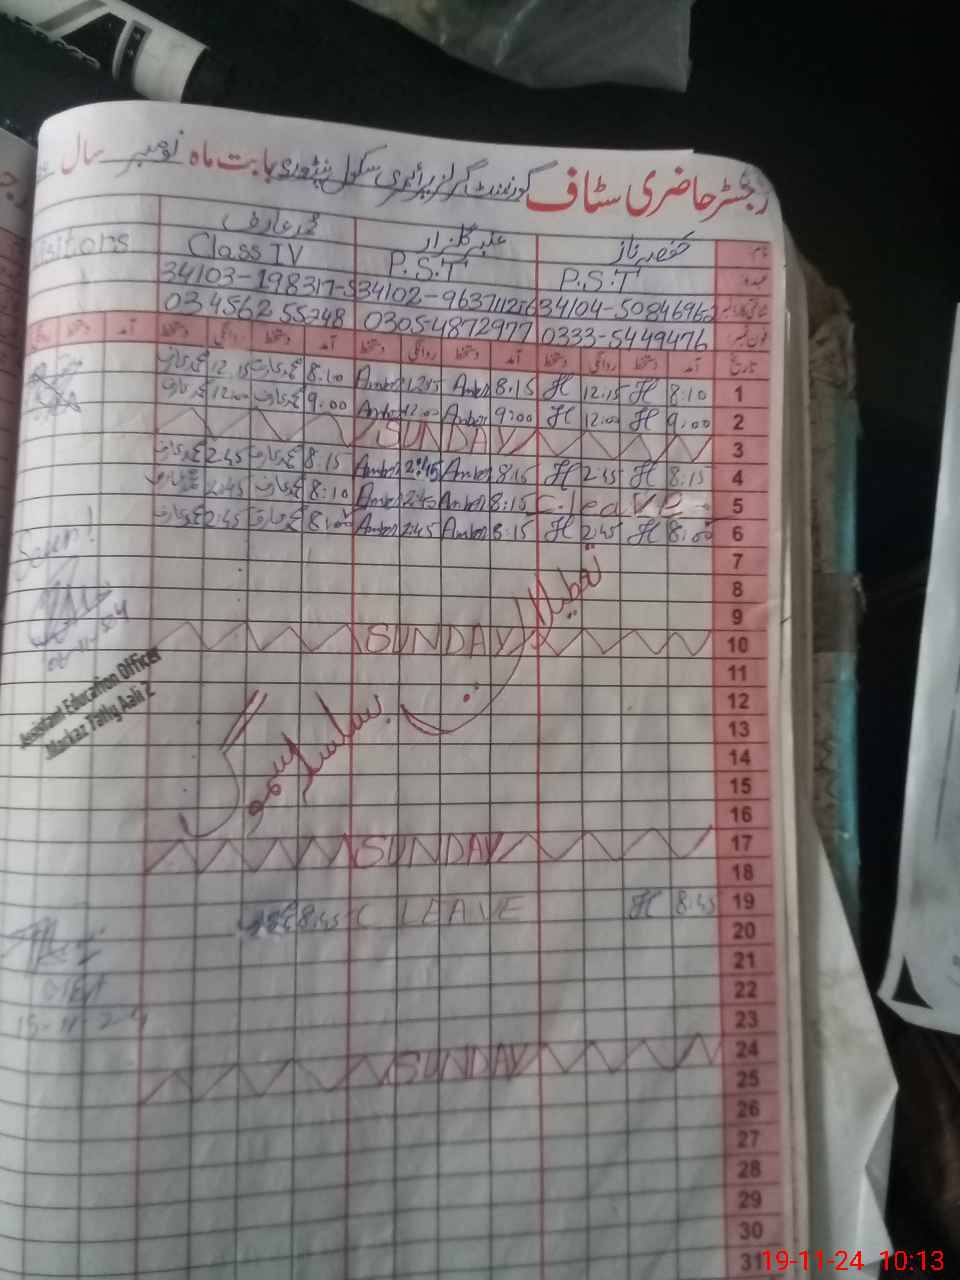 رجسٹر حاضری سٹاف گورنمنٹ گرلز پرائمری سکول بابت ماہ نومبر سال
نام عنبر گلزار محمد عارف
عہدہ P.S.T P.S.T Class IV Visitors
34104-5084696 34102-9637112 34103-198317-5
فون نمبر 0333-5449476 0305-4872977 03456255248
تاریخ آمد دستخط روانگی دستخط آمد دستخط روانگی دستخط آمد دستخط روانگی دستخط آمد دستخط روانگی
1 8:10 H 12:15 H 8:15 Amber 12:15 Amber 8:10 محمد عارف 12:15 محمد عارف
2 9:00 H 12:00 H 9:00 Amber 12:00 Amber 9:00 محمد عارف 12:00 محمد عارف
3 SUNDAY
4 8:15 H 2:45 H 8:15 Amber 2:45 Amber 8:15 محمد عارف 2:45 محمد عارف
5 C.leave 8:15 Amber 2:45 Amber 8:10 محمد عارف 2:45 محمد عارف
6 8:00 H 2:45 H 8:15 Amber 2:45 Amber 8:00 محمد عارف 2:45 محمد عارف
7
8
9
10 SUNDAY
تعطیلات بسلسلہ سموگ
Assistant Education Officer
Markaz Tatly Aali 2
11
12
13
14
15
16
17 SUNDAY
18
19 8:45 H C.LEAVE 8:45
20
21
22
23
15-11-24
24 SUNDAY
25
26
27
28
29
30
31
19-11-24 10:13